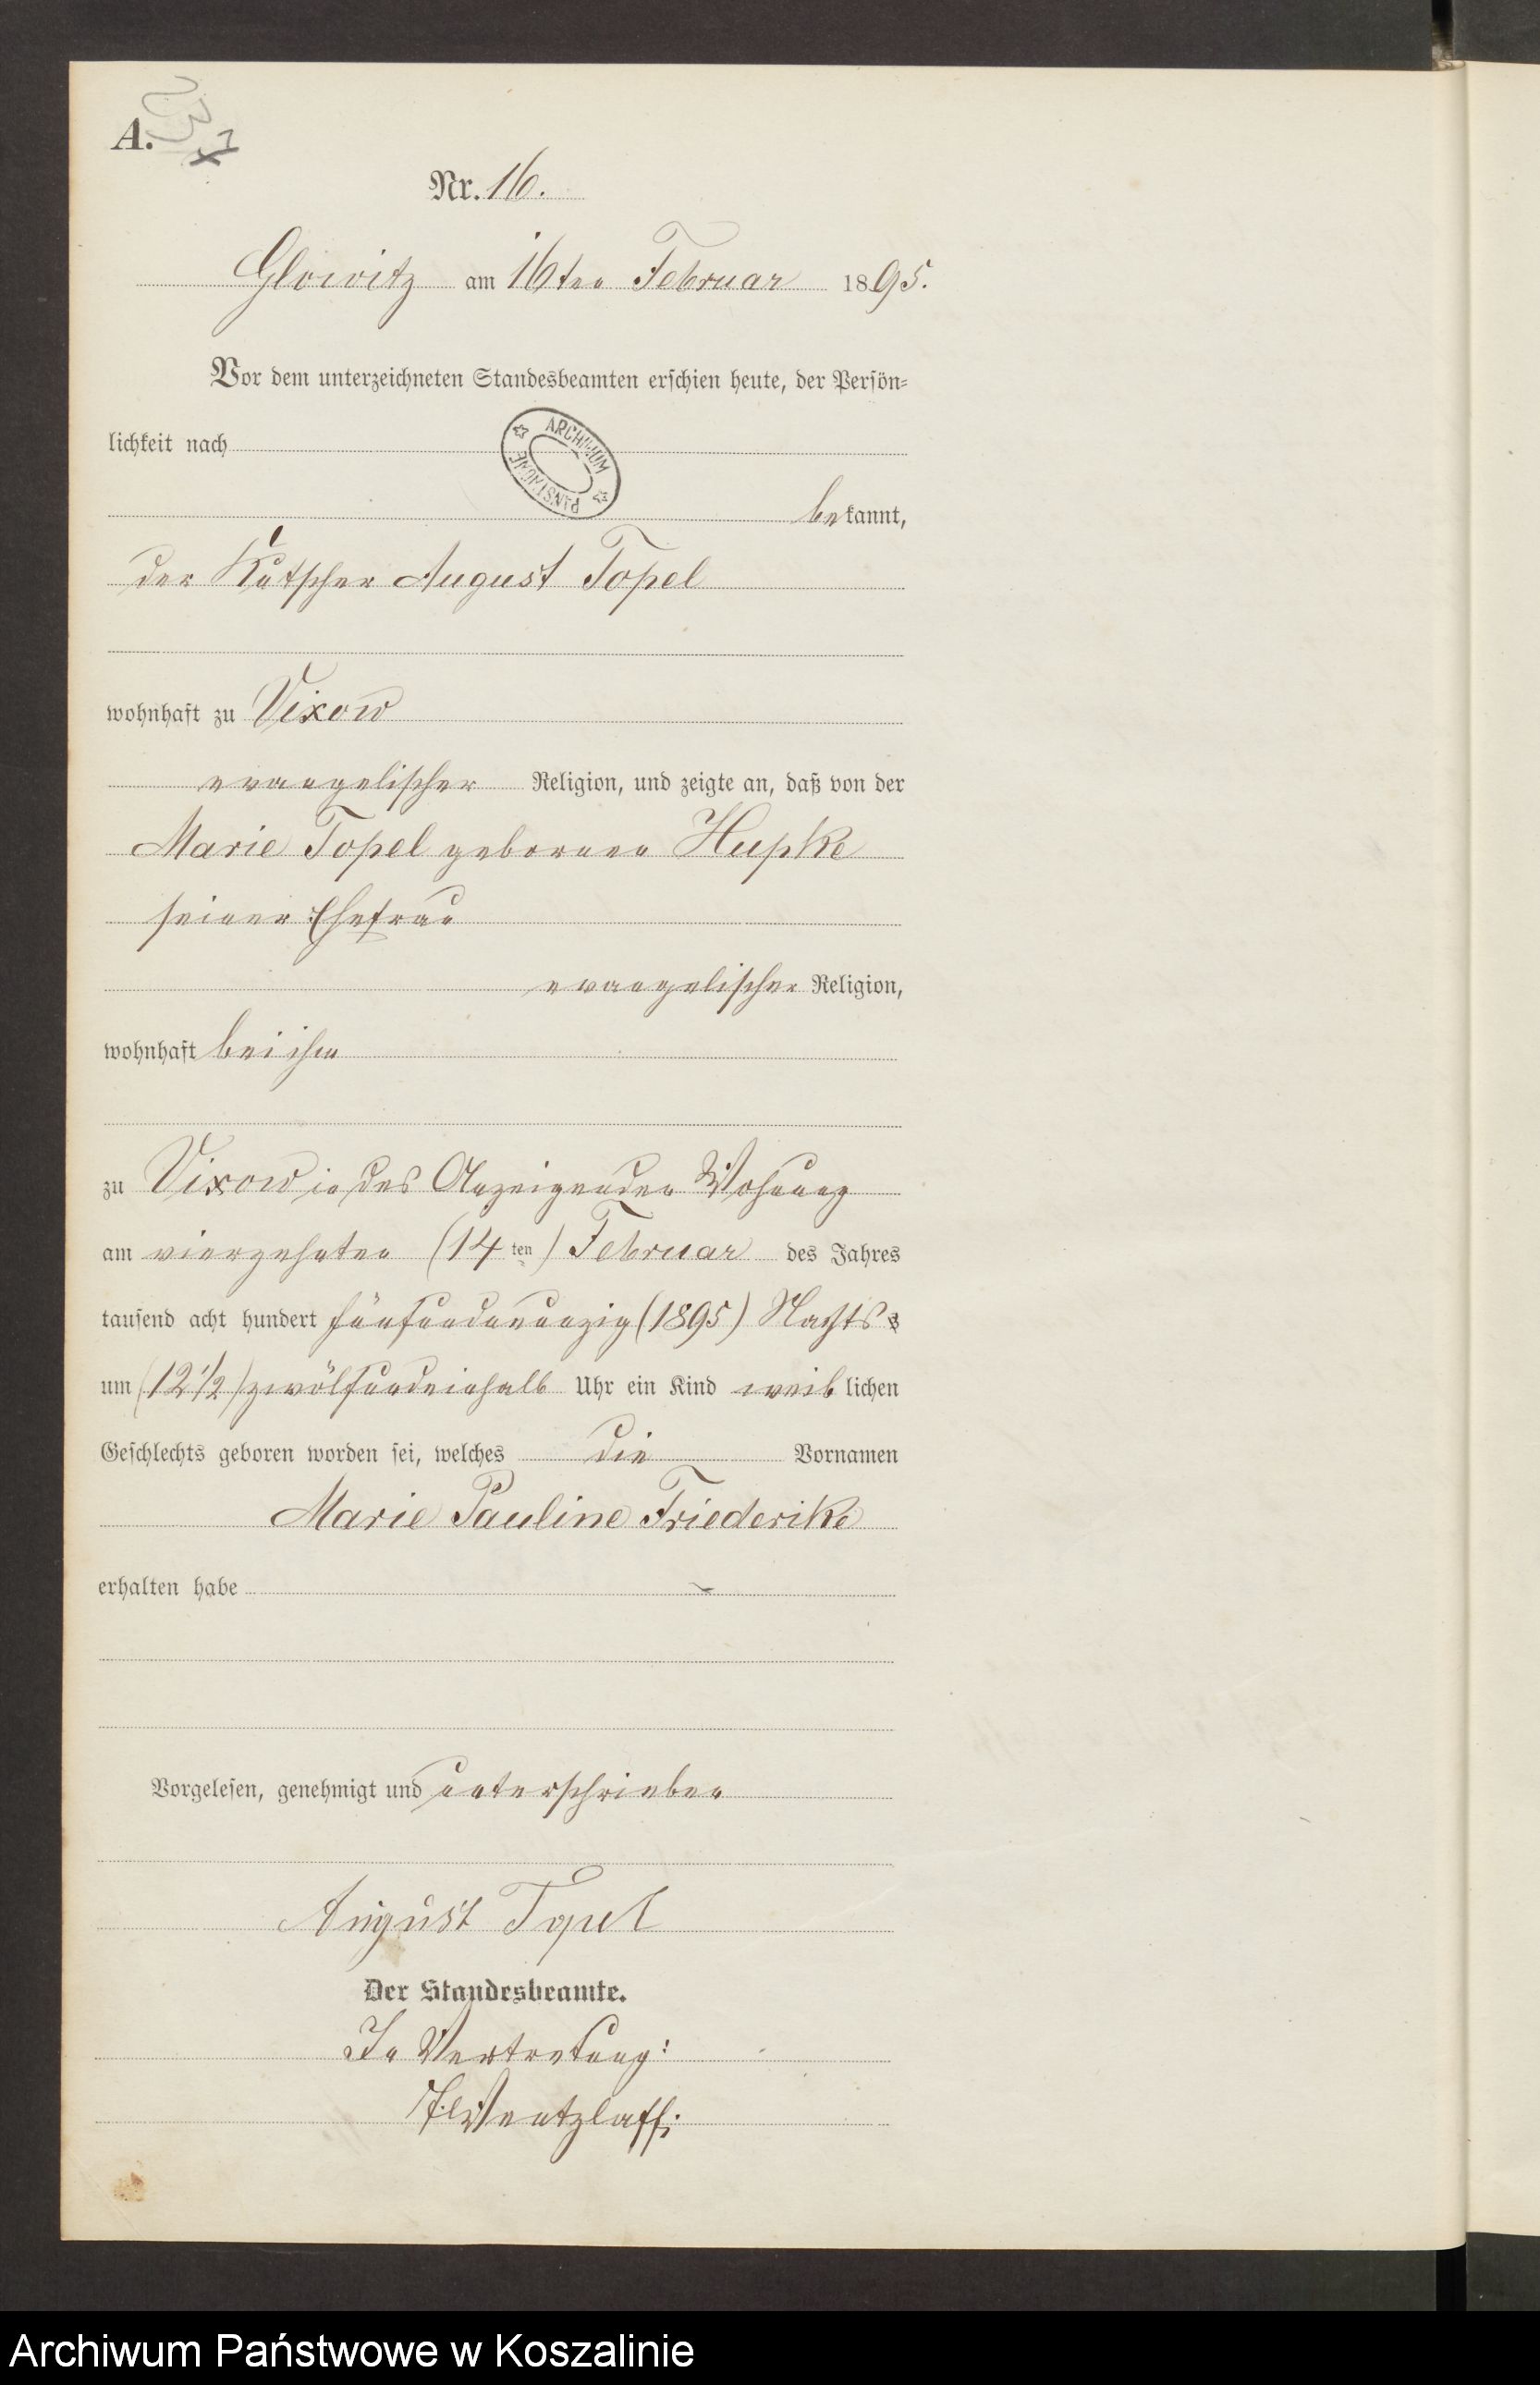 A.
Nr. 16.
Glowitz am 16ten Februar 1895.
Vor dem unterzeichneten Standesbeamten erschien heute, der Persön-
lichkeit nach
ARCHIWUM PAŃSTWOWE
bekannt,
der Kutscher August Topel
wohnhaft zu Vixow
evangelischer Religion, und zeigte an, daß von der
Marie Topel geborenen Hupke
seiner Ehefrau
evangelischer Religion,
wohnhaft bei ihm
zu Vixow in des Anzeigenden Wohnung
am vierzehnten (14ten) Februar des Jahres
tausend acht hundert fünfundneunzig (1895) Nachts
um (12 1/2) zwölfundeinhalb Uhr ein Kind weiblichen
Geschlechts geboren worden sei, welches die Vornamen
Marie Pauline Friederike
erhalten habe
Vorgelesen, genehmigt und unterschrieben
August Topel
Der Standesbeamte.
In Vertretung:
Wentzlaff.
Archiwum Państwowe w Koszalinie